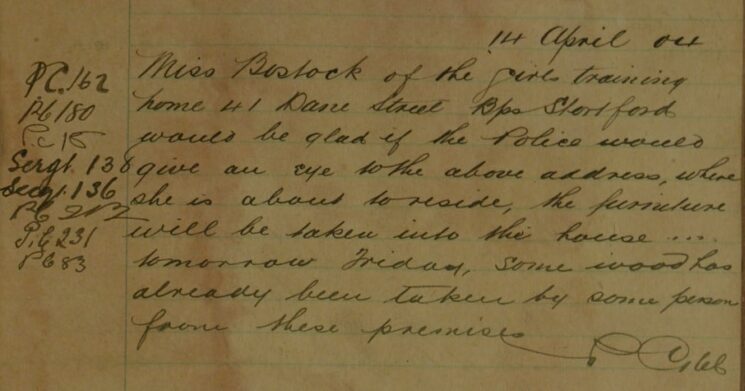 14 April 04
P.C. 162
Pc 180
P.c 15
Sergt. 138
Sergt. 136
P.C. 231
Pc 83
Miss Bostock of the girls training
home 41 Dane Street Bps Stortford
would be glad if the Police would
give an eye to the above address, where
she is about to reside, the furniture
will be taken into the house ....
tomorrow Friday, some wood has
already been taken by some person
from these premises